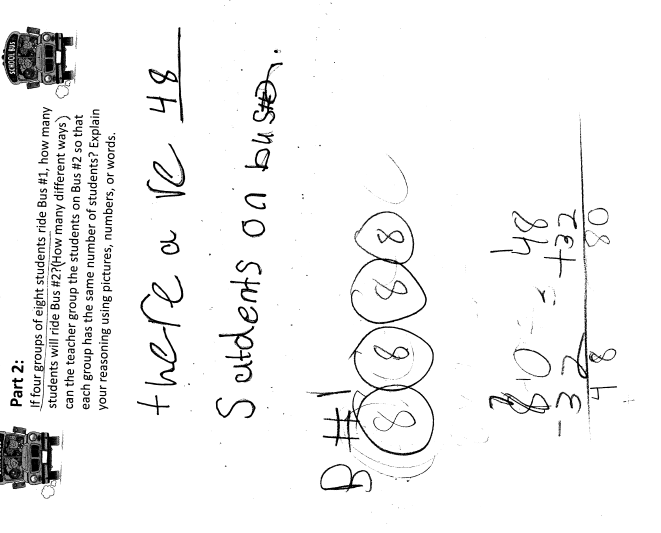 SCHOOL BUS
Part 2:
If four groups of eight students ride Bus #1, how many
students will ride Bus #2?(How many different ways)
can the teacher group the students on Bus #2 so that
each group has the same number of students? Explain
your reasoning using pictures, numbers, or words.
there are 48
Sutdents on bus
B #1
8 8 8 8
80 = 48
-32 +32
48 80